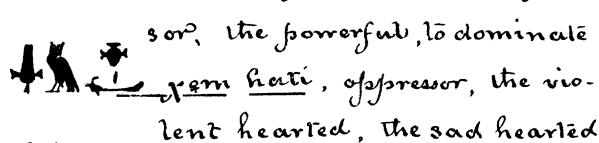 sor, the powerful, to dominate
χem hati, oppressor, the vio-
lent hearted, the sad hearted